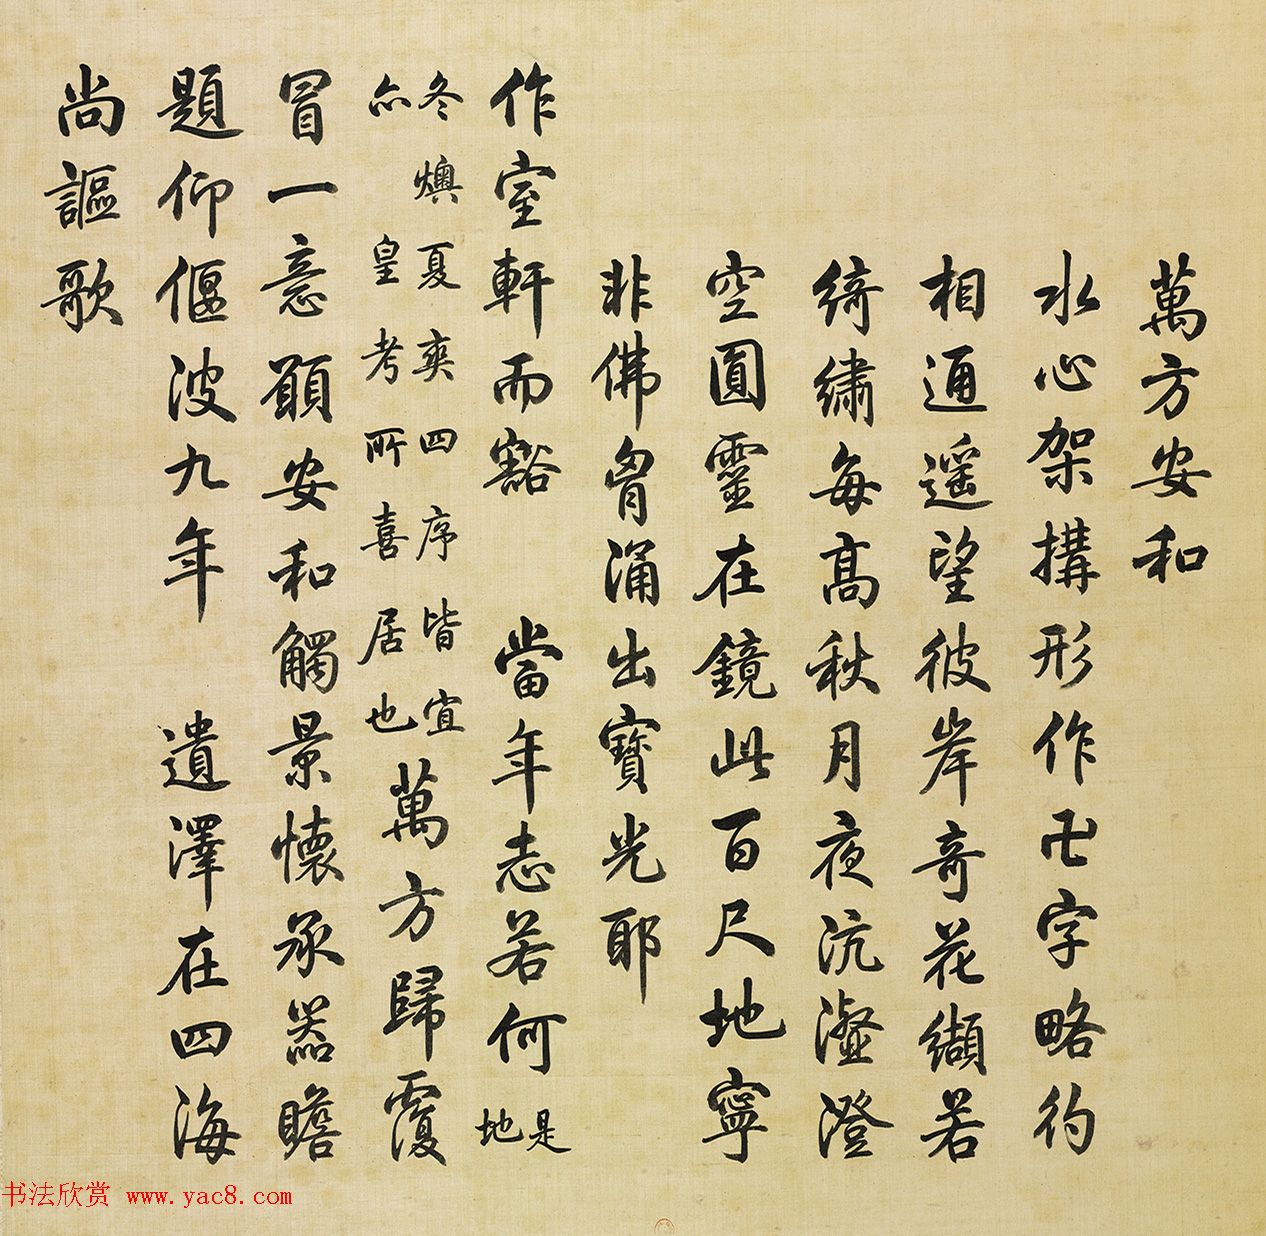 萬方安和
水心架構形作卍字略彴
相通遥望彼岸奇花纈若
綺繡每髙秋月夜沆瀣澄
空圓靈在鏡此百尺地寧
非佛胷涌出寶光耶
作室軒而豁 當年志若何 是地
冬燠夏爽四序皆宜
亦皇考所喜居也
萬方歸覆
冒一意願安和觸景懷承器瞻
題仰偃波九年 遺澤在四海
尚謳歌
书法欣赏 www.yac8.com